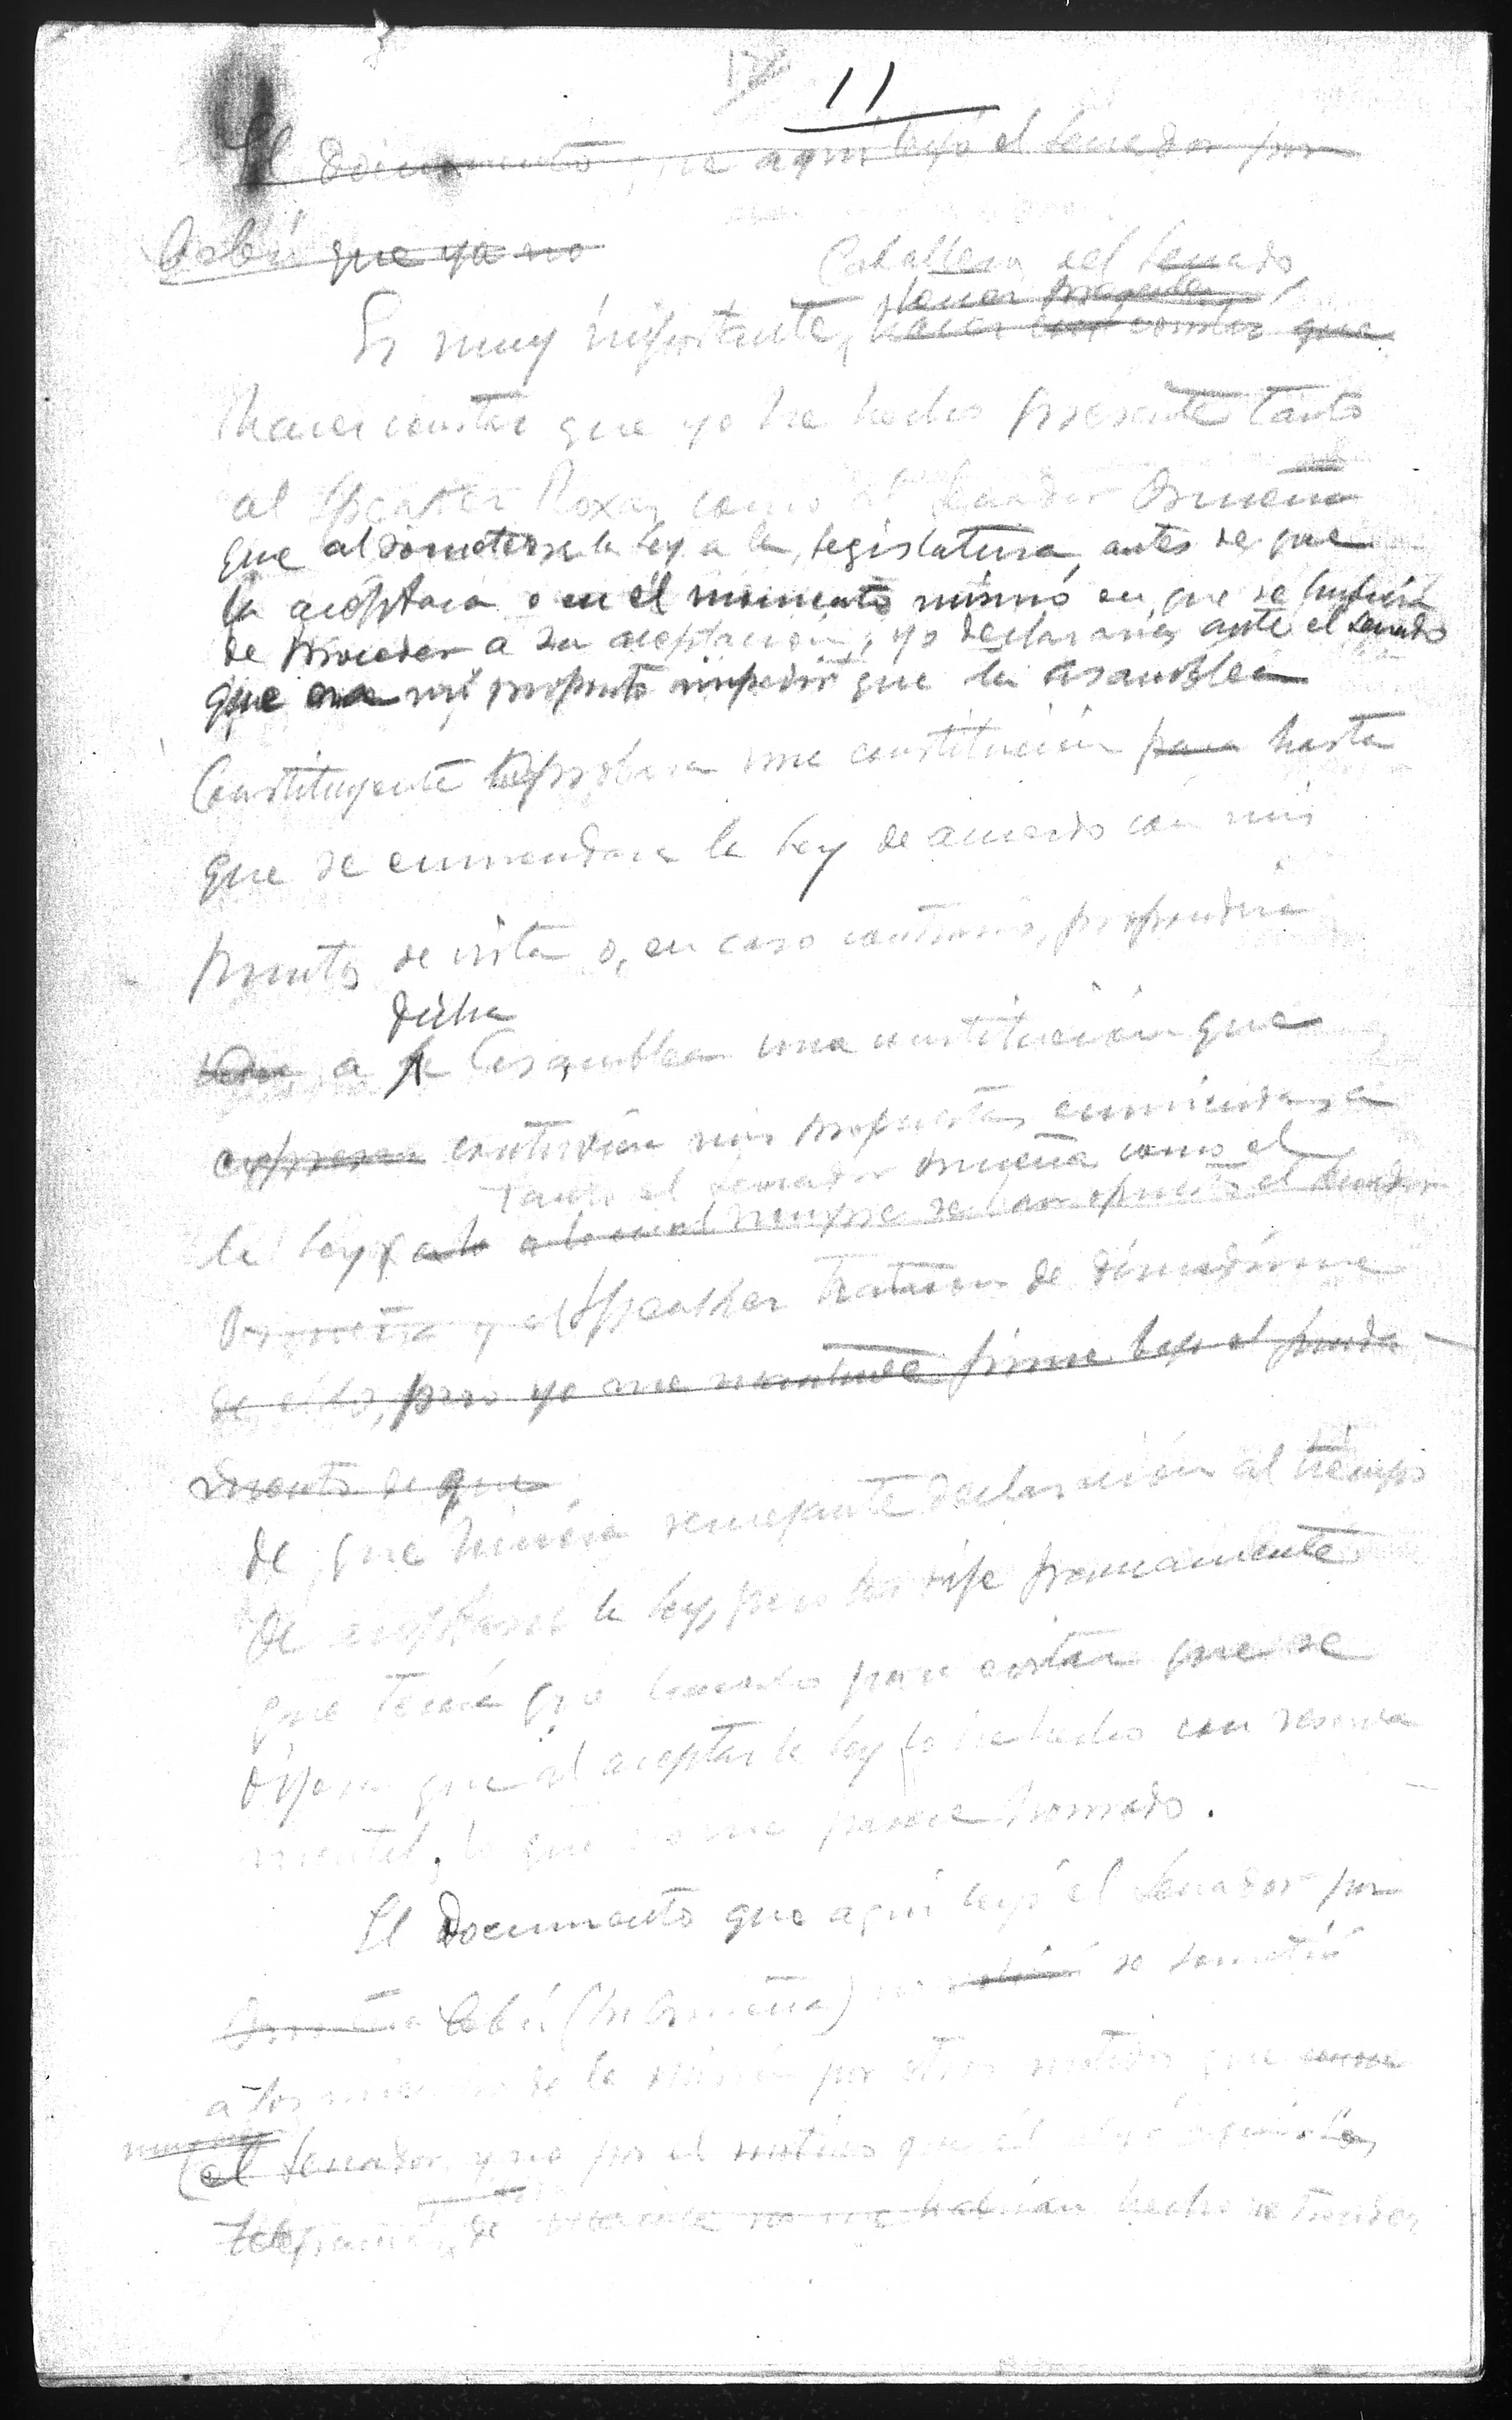 11
El Documento que aquí leyó el Senador por
Cebú que ya no
Caballeros del Senado,
tener presente
Es muy importante, hacer constar que
hacer constar que yo he hecho presente tanto
al Speaker Roxas como al Senador Osmeña
que al someterse la ley a la legislatura, antes de que
la aceptara o en el momento mismo en que se hubiera
de proceder a su aceptación, yo declararía ante el Senado
que era mi proposito impedir que la asamblea
Constituyente aprobara una constitución para hasta
que se enmendara la Ley de acuerdo con mis
puntos de vista o, en caso contrario, propondria
dicha
a la Asamblea una constitución que
expresara contuviera mis propuestas enmiendas a
Tanto el senador Osmeña como el
la Ley, a lo cual siempre se han opuesto el Senador
Osmeña y el Speaker trataron de disuadirme
de ello, pero yo me mantuve firme bajo el funda-
mento de que
de que hiciera semejante declaración al tiempo
de aceptarse la Ley, pero les dije francamente
que tenía que hacerlo para evitar que se
dijera que al aceptar la Ley lo he hecho con reserva
mental, lo que no me parece honrado.
El Documento que aquí leyó el Senador por
Osmeña Cebú (Sr Osmeña) no se sometió
a los miembros de la Misión por otros motivos que
el Senador y no por el motivo que él
de no me habrían hecho